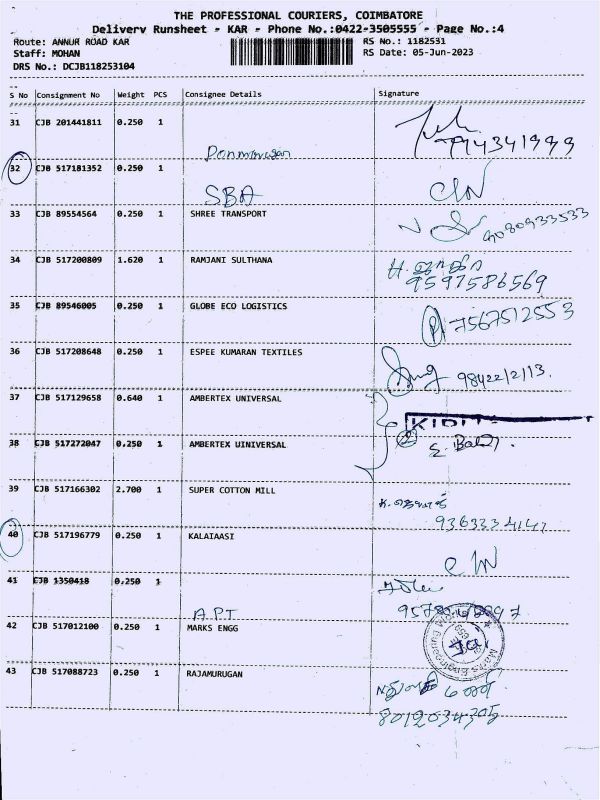 THE PROFESSIONAL COURIERS, COIMBATORE
Delivery Runsheet - KAR - Phone No.:0422-3505555 - Page No.:4
Route: ANNUR ROAD KAR RS No.: 1182531
Staff: MOHAN RS Date: 05-Jun-2023
DRS No.: DCJB118253104
S No Consignment No Weight PCS Consignee Details Signature
31 CJB 201441811 0.250 1
32 CJB 517181352 0.250 1
SBA
33 CJB 89554564 0.250 1 SHREE TRANSPORT
9080933533
34 CJB 517200809 1.620 1 RAMJANI SULTHANA
9597586569
35 CJB 89546005 0.250 1 GLOBE ECO LOGISTICS
7567512553
36 CJB 517208648 0.250 1 ESPEE KUMARAN TEXTILES
37 CJB 517129658 0.640 1 AMBERTEX UNIVERSAL
38 CJB 517272047 0.250 1 AMBERTEX UINIVERSAL
39 CJB 517166302 2.700 1 SUPER COTTON MILL
40 CJB 517196779 0.250 1 KALAIAASI
41 CJB 1350418 0.250 1
A.P.T
42 CJB 517012100 0.250 1 MARKS ENGG
43 CJB 517088723 0.250 1 RAJAMURUGAN
8012034305